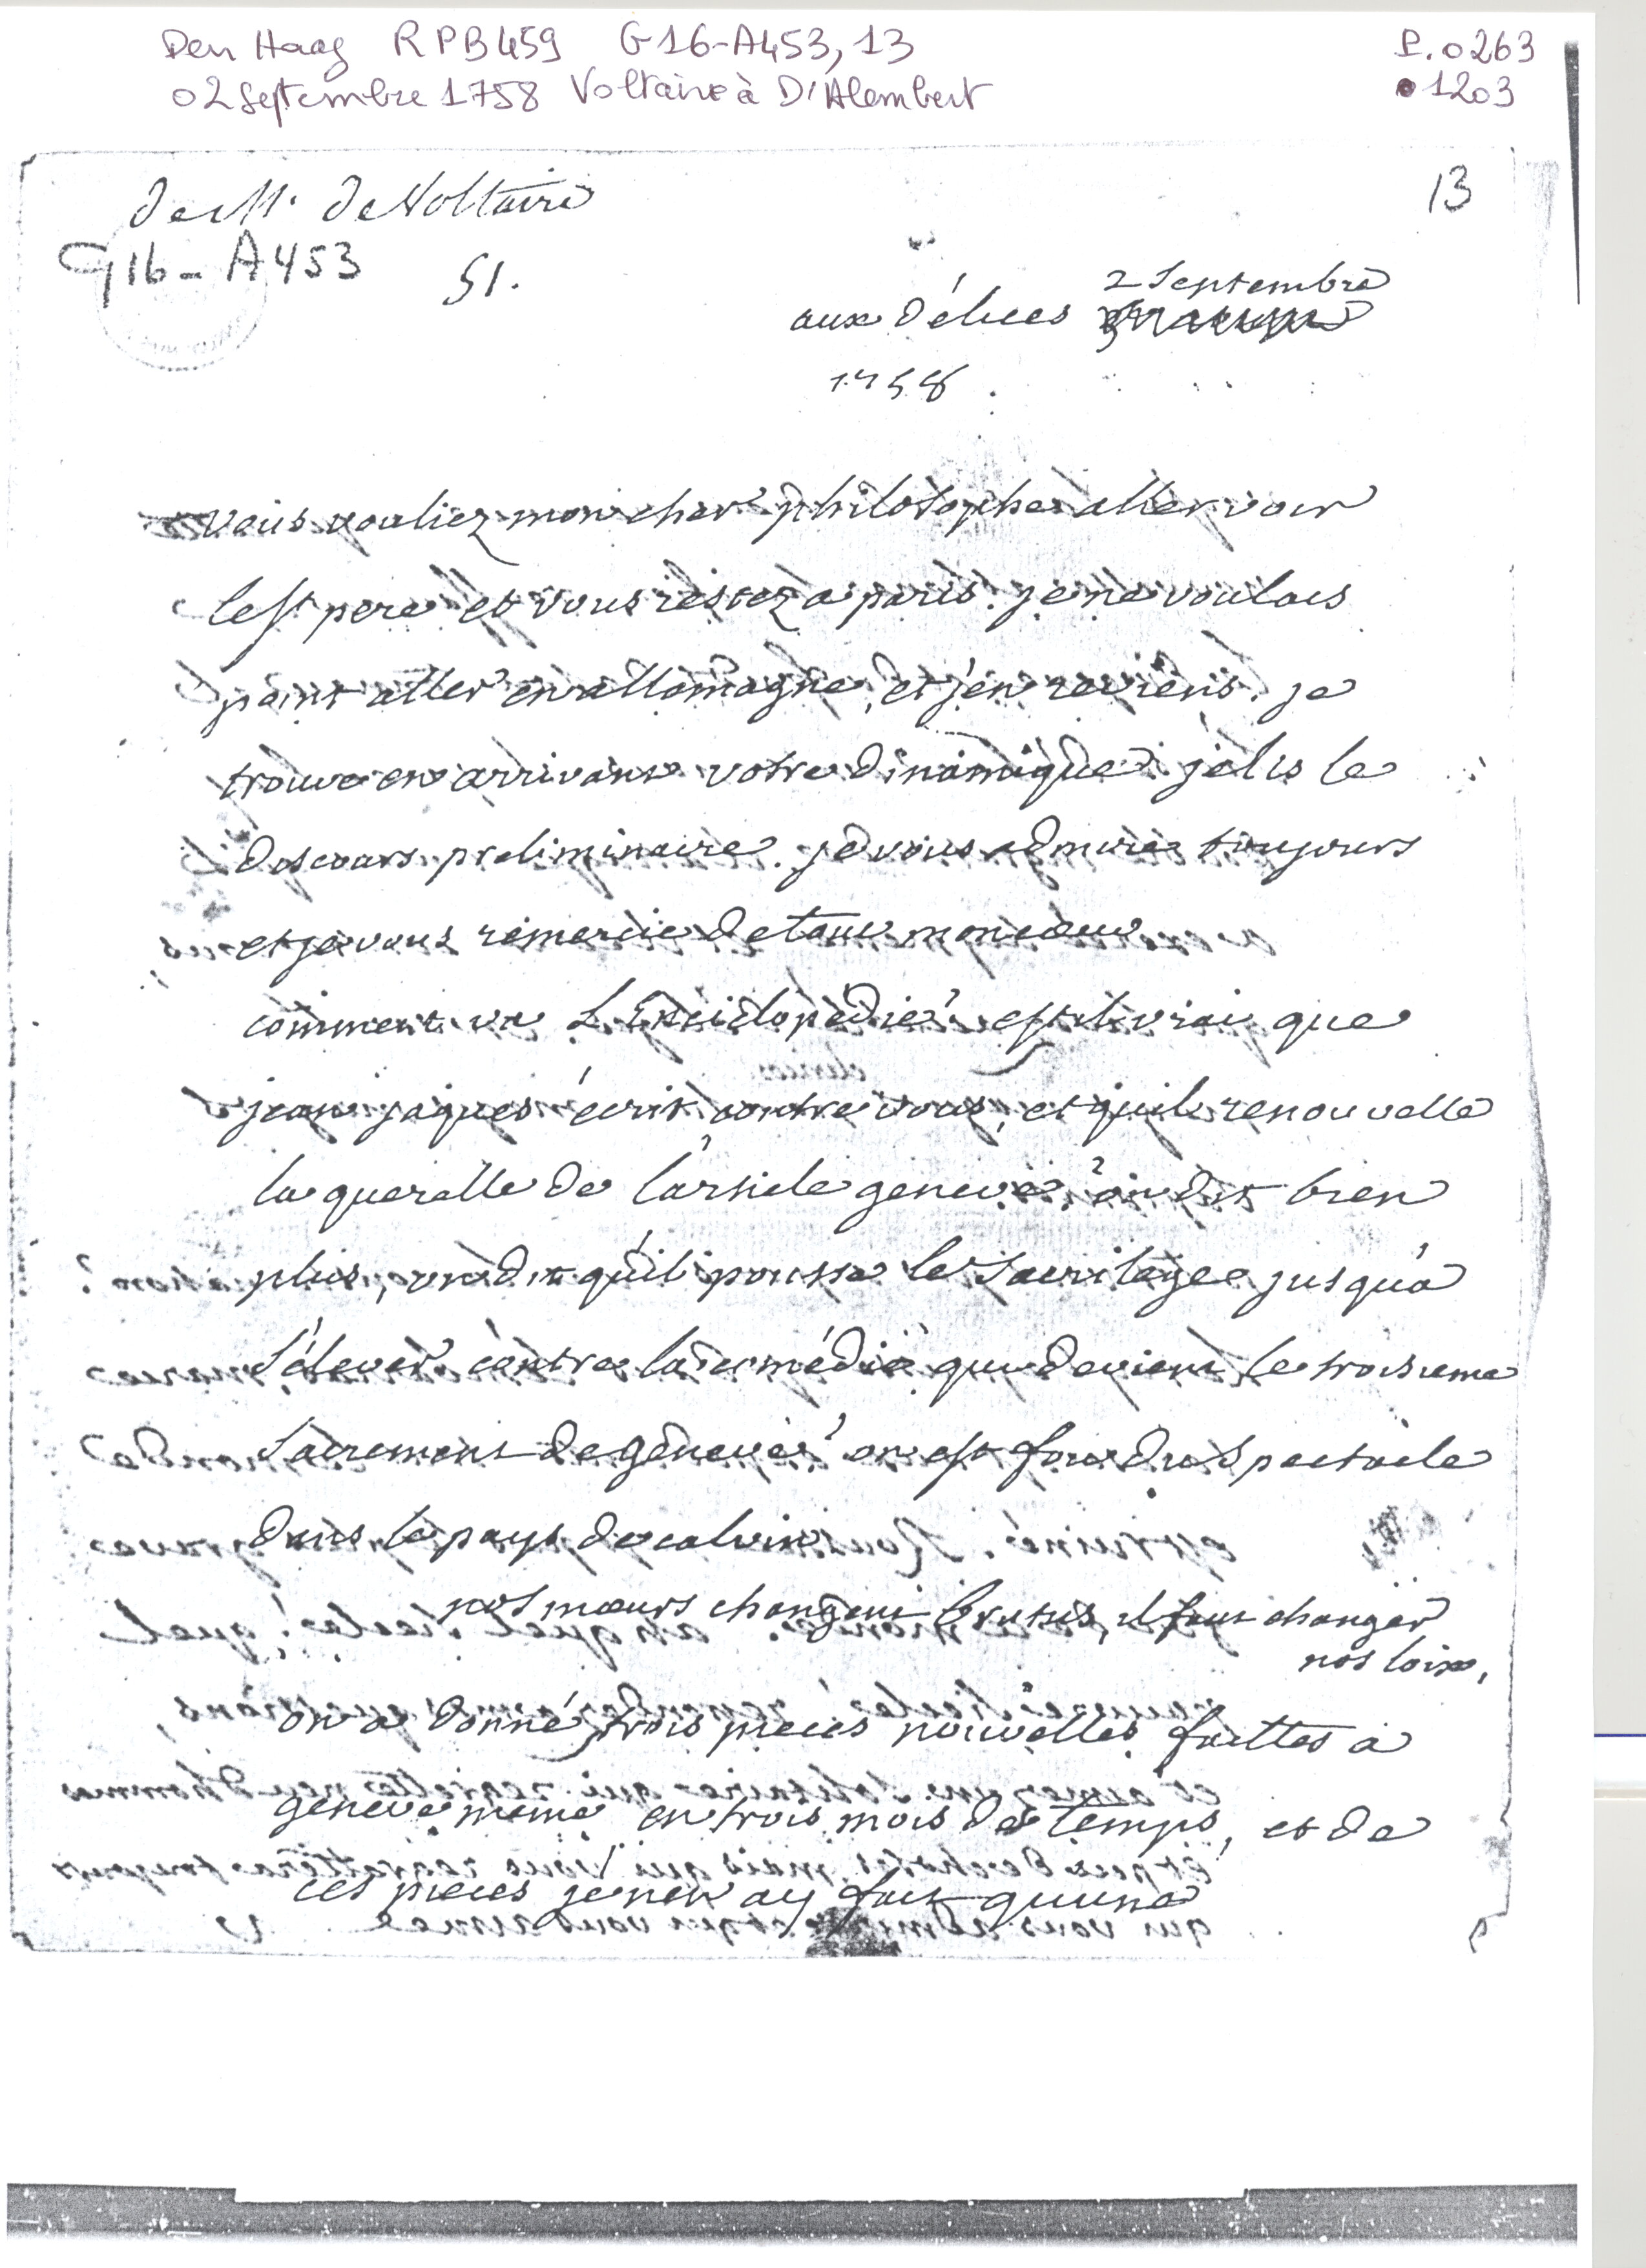 Den Haag RPB459 G16-A453, 13
P.0263
02 Septembre 1758 Voltaire à D'Alembert
1203
13
de Mr. de Voltaire
G16-A453
51.
2 Septembre
aux Délices
1758.
vous vouliez mon cher philosophe aller voir
le st pere et vous restez a paris. je ne voulais
point aller en allemagne, et j'en reviens. je
trouve en arrivant votre dinamique. je lis le
discours preliminaire. je vous admire toujours
et je vous remercie de tout mon cœur
comment va L'Enciclopédie? est il vrai que
jean jaques écrit contre vous, et quil renouvelle
la querelle de l'article geneve? on dit bien
plus, on dit qu'il pousse le sacrilege jusqu'à
s'élever contre la comédie qui devient le troisieme
sacrement de geneve, on est fou du spectacle
dans le pays de calvin
nos mœurs changent brutus, il faut changer
nos loix,
on a donné trois pieces nouvelles faittes à
geneve meme en trois mois de temps, et de
ces pieces je n'en ay fait qu'une